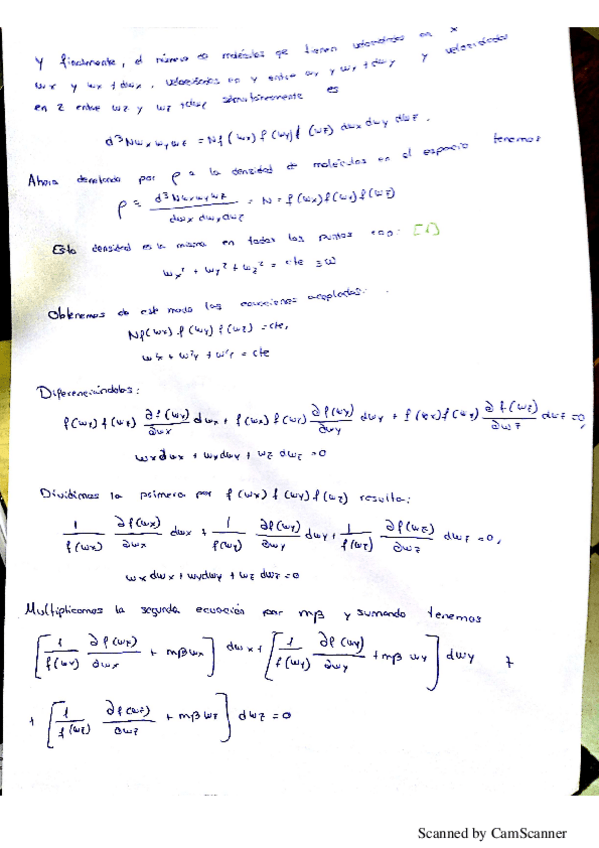 Y finalmente, el número de moléculas que tienen velocidades en x
wx y wx + dwx, velocidades en y entre wy y wy + dwy y velocidades
en z entre wz y wz + dwz simultáneamente es
d³Nwx wy wz = N f(wx) f(wy) f(wz) dwx dwy dwz.
Ahora denotando por ρ a la densidad de moléculas en el espacio tenemos
ρ = d³Nwx wy wz / dwx dwy dwz = N f(wx) f(wy) f(wz)
Esta densidad es la misma en todos los puntos con: [1]
wx² + wy² + wz² = cte
Obtenemos de este modo las ecuaciones acopladas:
N f(wx) f(wy) f(wz) = cte,
w²x + w²y + w²z = cte
Diferenciándolas:
f(wy) f(wz) ∂f(wx)/∂wx dwx + f(wx) f(wz) ∂f(wy)/∂wy dwy + f(wx) f(wy) ∂f(wz)/∂wz dwz = 0,
wx dwx + wy dwy + wz dwz = 0
Dividimos la primera por f(wx) f(wy) f(wz) resulta:
1/f(wx) ∂f(wx)/∂wx dwx + 1/f(wy) ∂f(wy)/∂wy dwy + 1/f(wz) ∂f(wz)/∂wz dwz = 0,
wx dwx + wy dwy + wz dwz = 0
Multiplicamos la segunda ecuación por mβ y sumando tenemos
[1/f(wx) ∂f(wx)/∂wx + mβ wx] dwx + [1/f(wy) ∂f(wy)/∂wy + mβ wy] dwy +
+ [1/f(wz) ∂f(wz)/∂wz + mβ wz] dwz = 0
Scanned by CamScanner